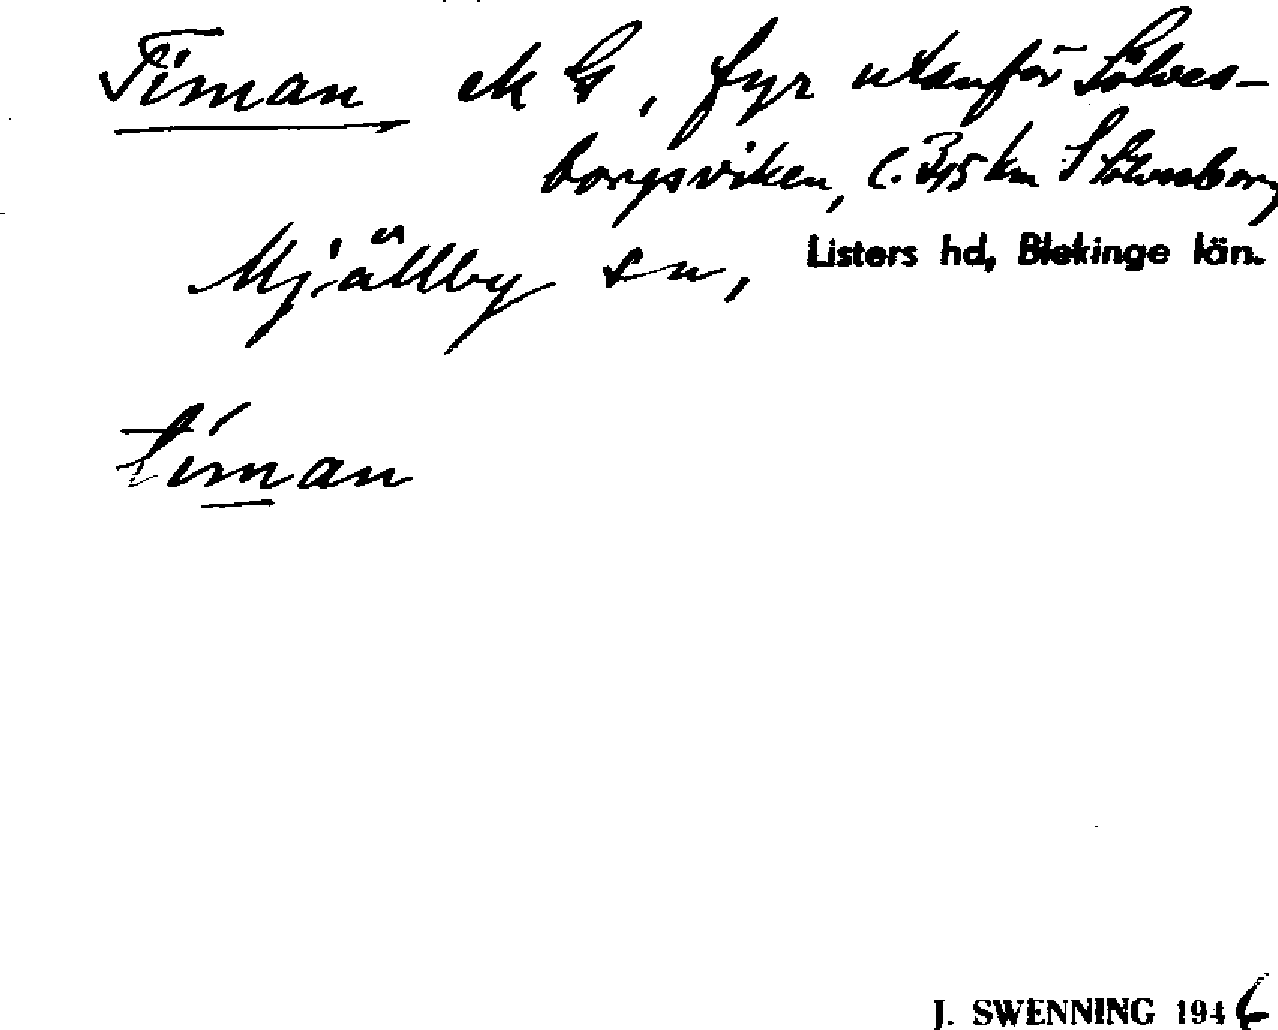 Timan ek G, fyr utanför Sölves-
borgsviken, c. 3,5 km S Sölvesborg
Mjällby sn, Listers hd, Blekinge län.
tíman
J. SWENNING 1946